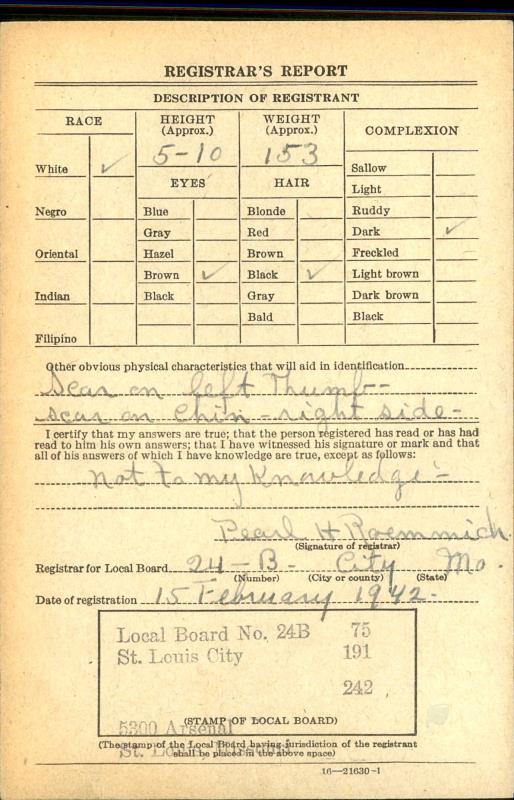 REGISTRAR'S REPORT
DESCRIPTION OF REGISTRANT
RACE
HEIGHT (Approx.)
WEIGHT (Approx.)
COMPLEXION
5-10
153
White ✓
Sallow
Light
EYES
HAIR
Negro
Blue
Blonde
Ruddy
Gray
Red
Dark ✓
Oriental
Hazel
Brown
Freckled
Brown ✓
Black ✓
Light brown
Indian
Black
Gray
Dark brown
Bald
Black
Filipino
Other obvious physical characteristics that will aid in identification
Scar on left Thumb--
scar on Chin - right side-
I certify that my answers are true; that the person registered has read or has had
read to him his own answers; that I have witnessed his signature or mark and that
all of his answers of which I have knowledge are true, except as follows:
not to my Knowledge-
Pearl H Roemmich.
(Signature of registrar)
Registrar for Local Board 24-B- City Mo.
(Number) (City or county) (State)
Date of registration 15 February 1942-
Local Board No. 24B 75
St. Louis City 191
242
(STAMP OF LOCAL BOARD)
5300 Arsenal
(The stamp of the Local Board having jurisdiction of the registrant
shall be placed in the above space)
St. Louis
16-21630-1